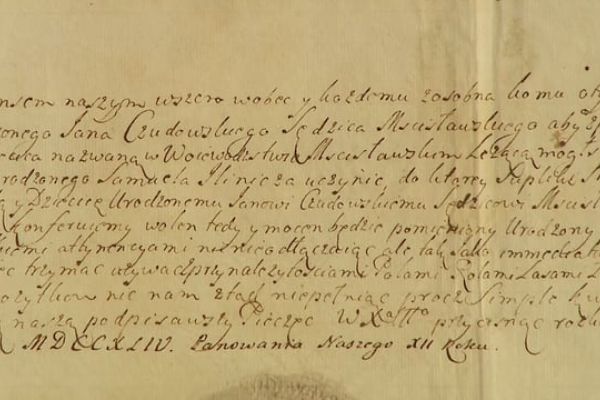 nsem naszym wszem wobec y każdemu zosobna komu o
onego Jana Czudowskiego Sędzica Mscisławskiego aby
nazwaną w Woiewodztwie Mscisławskim Leżącą mógł
rodzonego Samuela Ilinicza uczynić, do ktorey Suplik
y Dziedzicę Urodzonemu Janowi Czudowskiemu Sędzicowi Mscisł
Konferujemy wolen tedy y mocen będzie pomieniony Urodzony
kiemi attynencyami nic nieodłączaiąc ale tak iako immediat
trzymać używać przynależytościami Polami, Rolami Lasami L
ożytkow nic nam ztąd niepełniąc procz Simple kw
naszą podpisawszy Pieczęć W X Litto przycisnąć roz
MDCCXLIV. Panowania Naszego XII Roku.